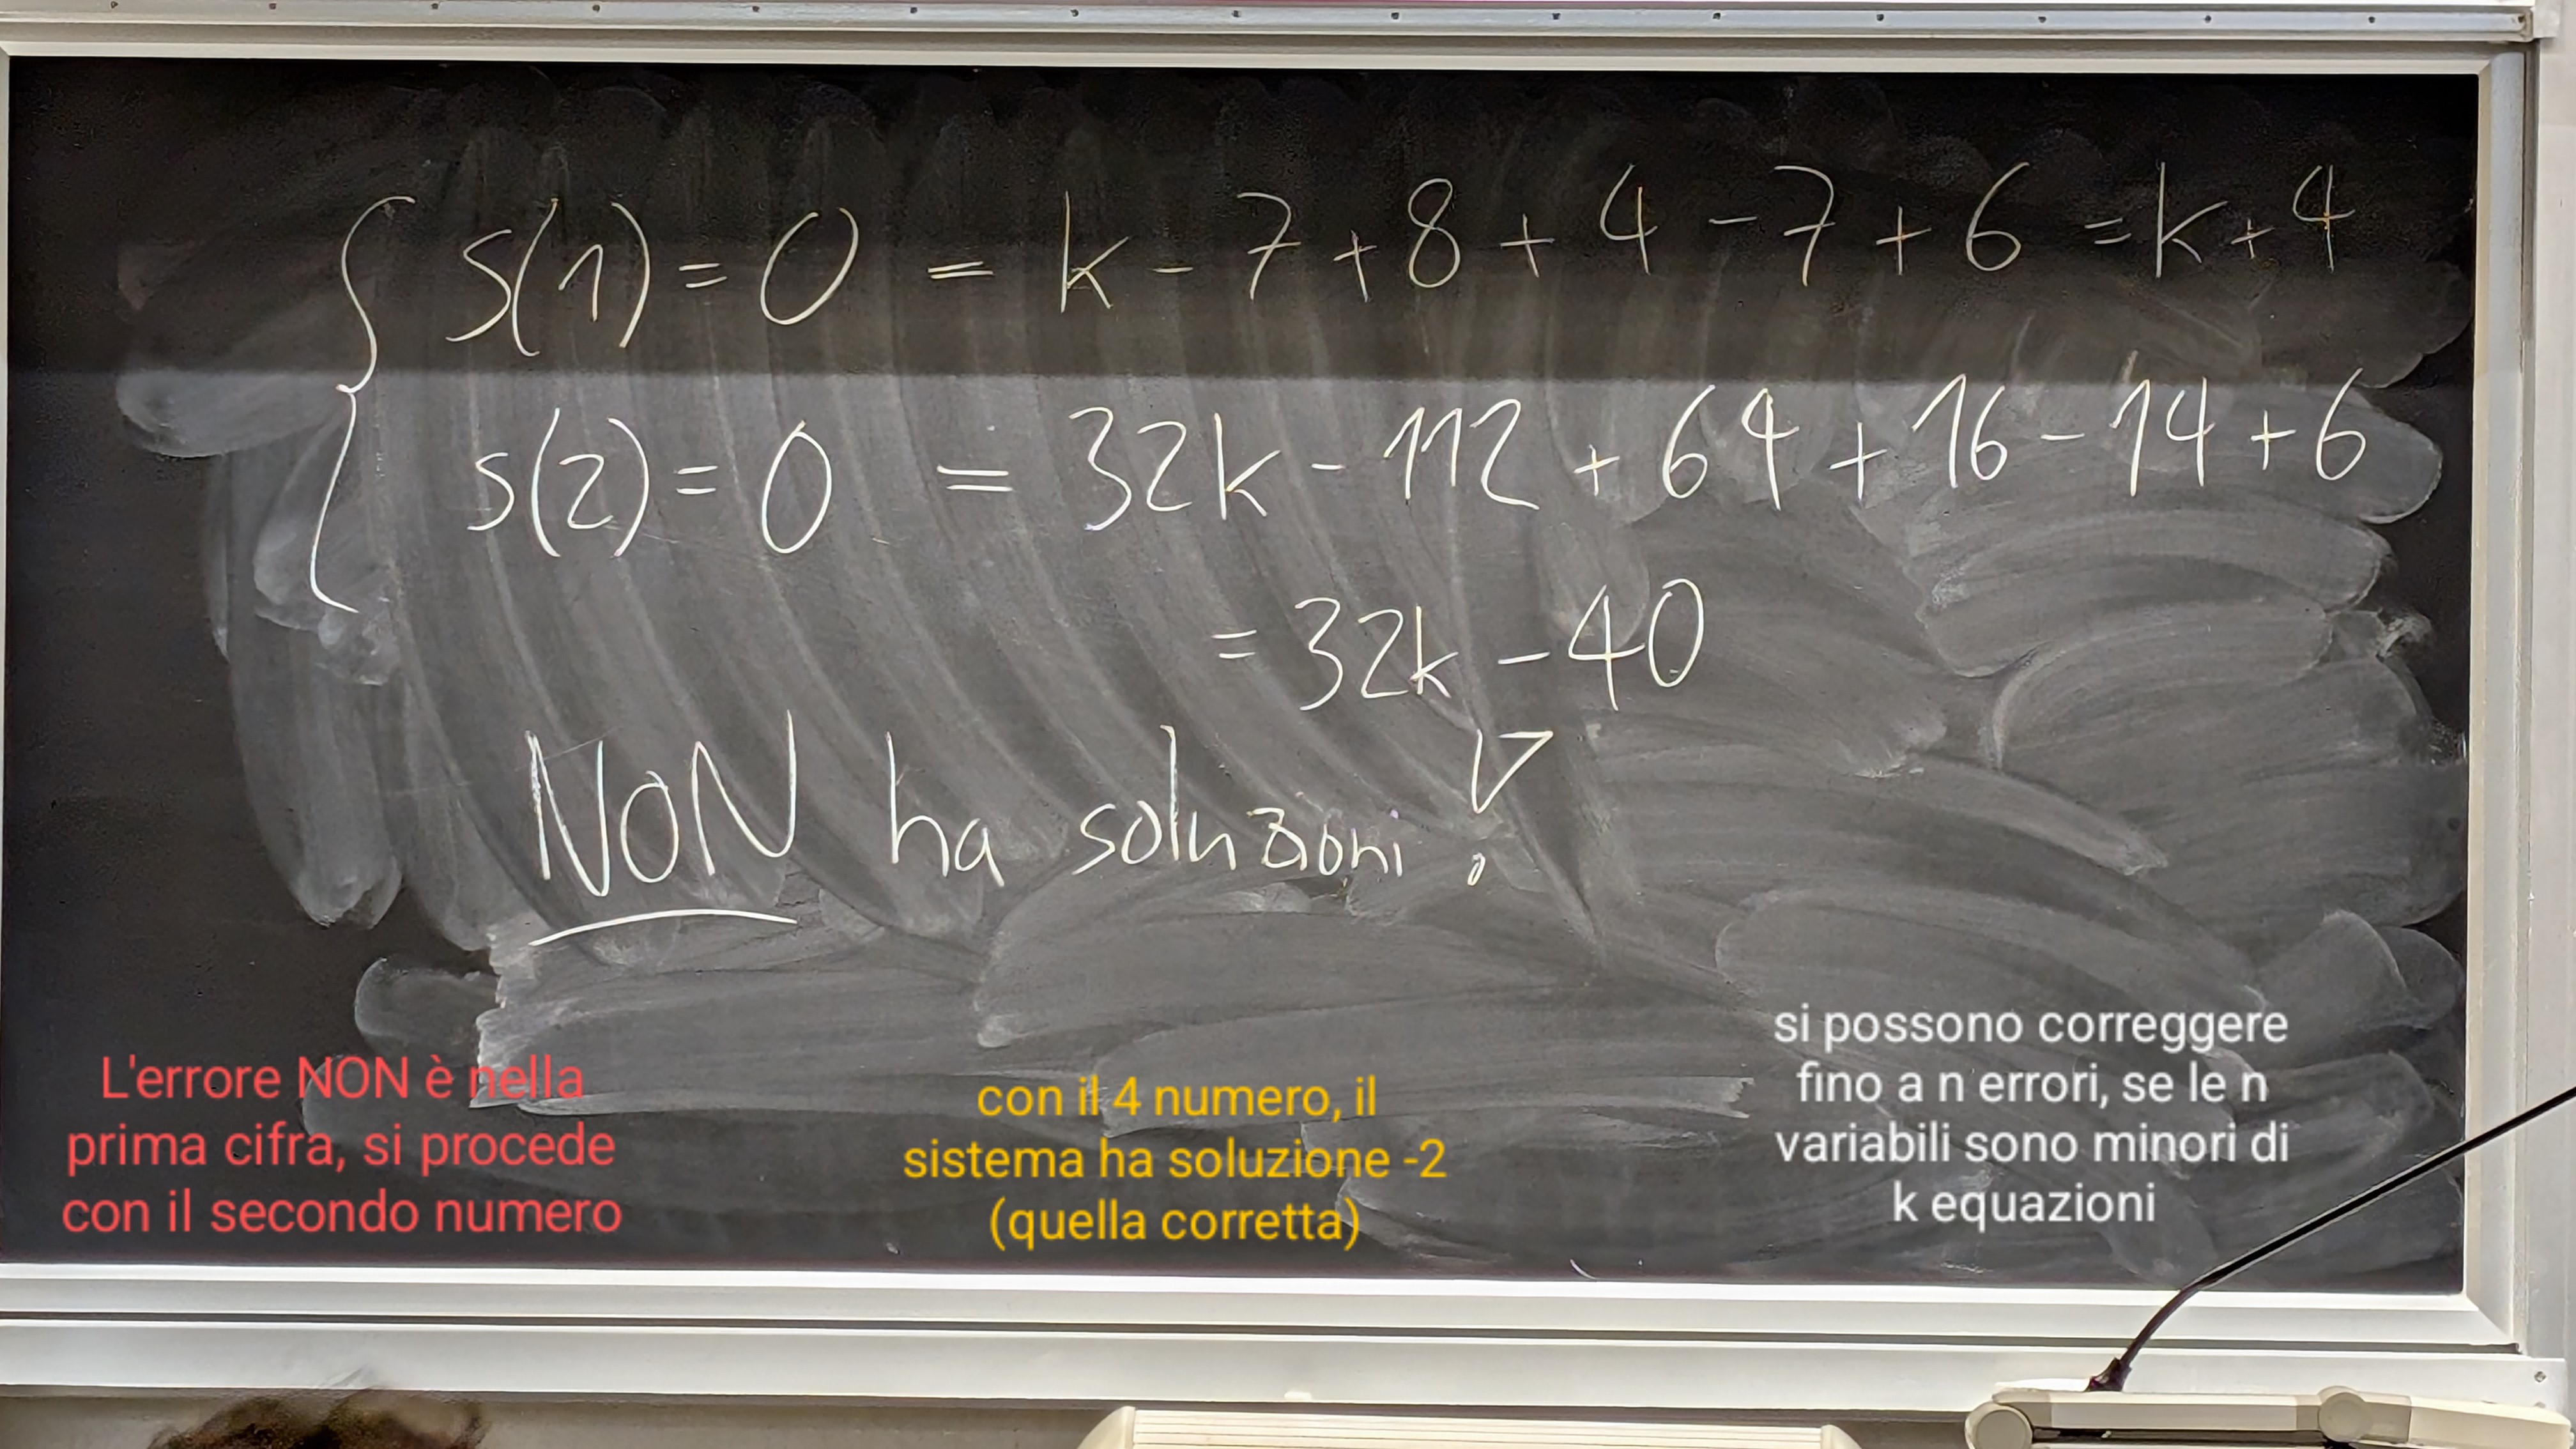 s(1) = 0 = k - 7 + 8 + 4 - 7 + 6 = k + 4
s(2) = 0 = 32k - 112 + 64 + 16 - 14 + 6
= 32k - 40
NON ha soluzioni!
L'errore NON è nella
prima cifra, si procede
con il secondo numero
con il 4 numero, il
sistema ha soluzione -2
(quella corretta)
si possono correggere
fino a n errori, se le n
variabili sono minori di
k equazioni